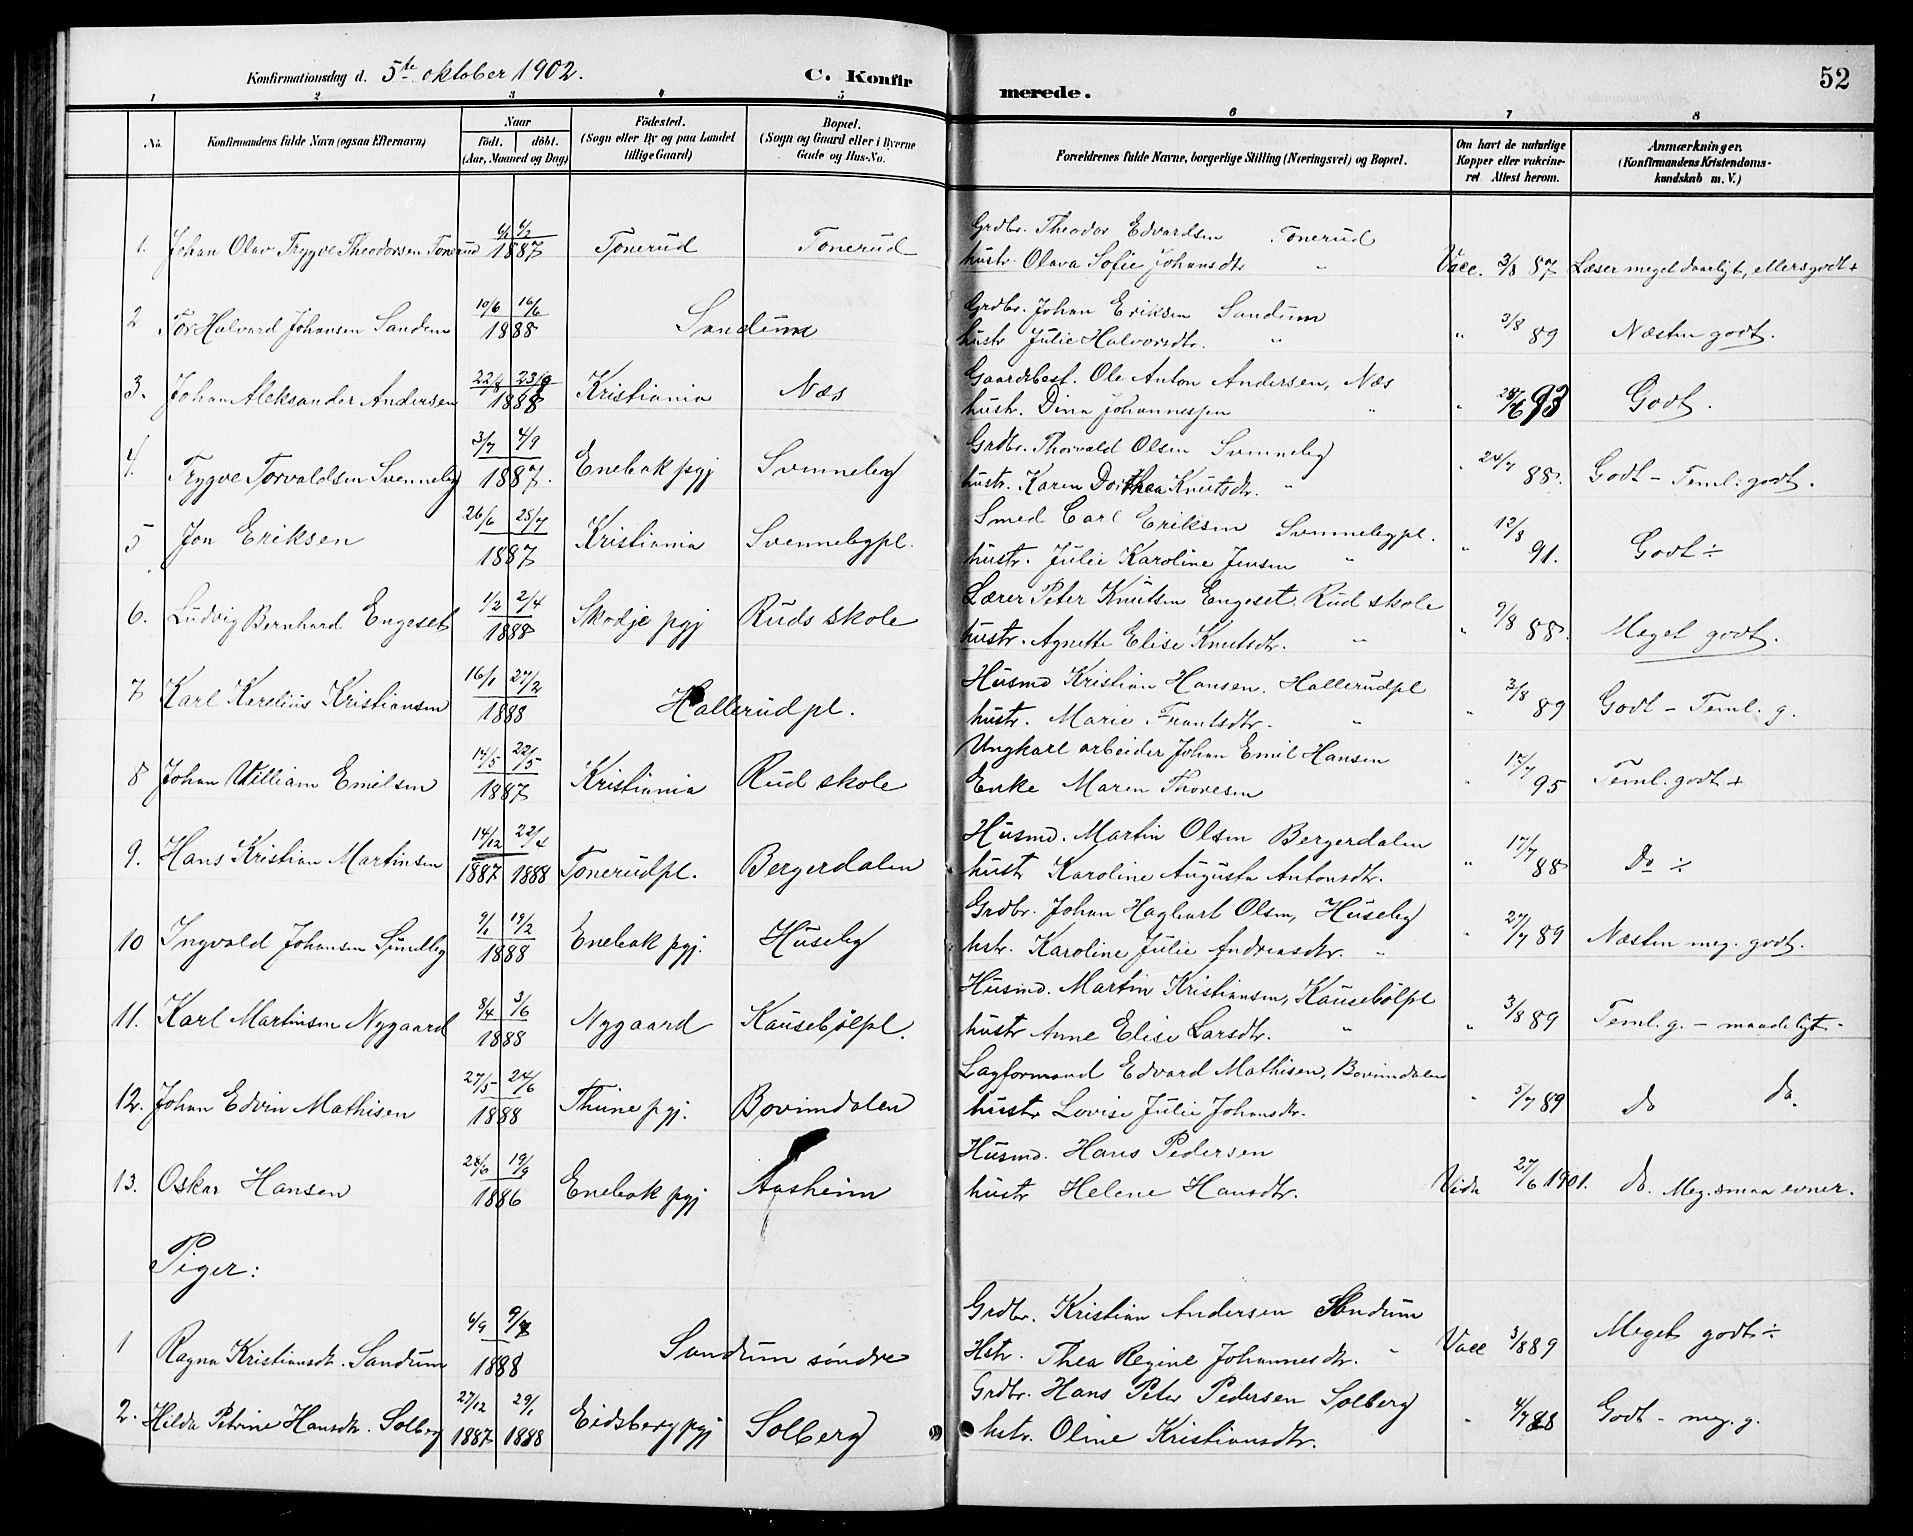 Konfirmationsdag d. 5te oktober 1902. C. Konfirmerede. 52
1 2 3 4 5 6 7 8
No. Konfirmandens fulde Navn (ogsaa Efternavn) Naar födt. döbt. (Aar, Maaned og Dag) Födested. (Sogn eller By og paa Landet tillige Gaard) Bopæl. (Sogn og Gaard eller i Byerne Gade og Hus-No. Forældrenes fulde Navne, borgerlige Stilling (Næringsvei) og Bopæl. Om havt de naturlige Kopper eller vakcineret Attest herom. Anmærkninger. (Konfirmandens Kristendomskundskab m. V.)
1. Johan Olav Trygve Theodorsen Tonerud 6/2 1887 Tonerud Tonerud Grdbr. Theodor Edvardsen Tonerud
hustr. Olava Sofie Johansdtr " Vacc. 3/8 87 Læser meget daarligt, ellers godt +
2 Tor Halvard Johansen Sandem 10/6 16/6 1888 Sandum Grdbr. Johan Eriksen Sandum
hustr Julie Halvorsdtr. " " 3/8 89 Næsten godt.
3. Johan Aleksander Andersen 22/8 1888 Kristiania Næs Gaardsbest. Ole Anton Andersen, Næs
hustr. Dina Johannessen " " 93 Godt.
4. Trygve Torvaldsen Svenneby 3/7 4/9 1887. Enebak pgj Svenneby Grdbr. Thorvald Olsen Svenneby
hustr. Karen Dorthea Knutsdtr. " " 24/7 88. Godt - Teml. godt.
5 Jon Eriksen 26/6 28/7 1887 Kristiania Svennebypl. Smed Carl Eriksen Svennebypl.
hustr. Julie Karoline Jensen " " 12/8 91. Godt ÷
6. Ludvig Bernhard Engeset 1/2 2/4 1888 Skodje pgj Ruds skole Lærer Peter Knutsen Engeset. Rud skole
hustr. Agnette Elise Knutsdtr. " " 9/8 88. Meget godt.
7 Karl Karelius Kristiansen 16/1 27/2 1888 Hallerudpl. Husmd Kristian Hansen. Hallerudpl
hustr. Marie Frantsdtr. " " 3/8 89 Godt - Teml. g.
8 Johan William Emilsen 14/5 22/5 1887 Kristiania Rud skole Ungkarl arbeider Johan Emil Hansen
Enke Maren Thoresen " 12/7 95 Teml. godt +
9. Hans Kristian Martinsen 14/12 1887 22/4 1888 Tonerudpl. Bergerdalen Husmd. Martin Olsen Bergerdalen
hustr Karoline Augusta Antonsdtr. " 17/7 88 Do ÷
10 Ingvald Johansen Sundby 9/1 19/2 1888 Enebak pgj. Huseby Grdbr. Johan Hagbart Olsen, Huseby
hstr. Karoline Julie Andreasdtr. " " 27/7 89 Næsten meg. godt.
11. Karl Martinsen Nygaard 8/4 3/6 1888 Nygaard Kausebölpl. Husmd. Martin Kristiansen, Kausebölpl
hustr Anne Elise Larsdtr. " " 3/8 89 Teml. g. - maadeligt -
12. Johan Edvin Mathisen 27/5 24/6 1888 Thune pgj. Bovimdalen Lagformand Edvard Mathisen, Bovimdalen
hustr Lovise Julie Johansdtr. " 5/7 89 do do.
13. Oskar Hansen 28/6 19/9 1886 Enebak pgj Aasheim Husmd. Hans Pedersen
hustr Helene Hansdtr. Vidn 27/6 1901. do. Meg. smaa evner.
Piger:
1 Ragna Kristiansdt. Sandum 6/9 1888 Sandum söndre Grdbr. Kristian Andersen Sandum
Hstr. Thea Regine Johannesdtr. " Vacc 3/8 89 Meget godt ÷
2. Hilda Petrine Hansdtr. Solberg 27/12 1887 29/1 1888 Eidsberg pgj Solberg Grdbr. Hans Peter Pedersen Solberg
hstr. Oline Kristiansdtr. " 4/7 88 Godt - meg. g.